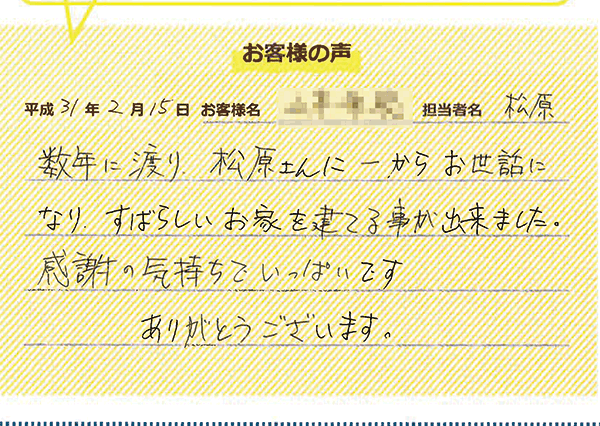 お客様の声
平成 31 年 2 月 15 日 お客様名 担当者名 松原
数年に渡り、松原さんに一からお世話に
なり、すばらしいお家を建てる事が出来ました。
感謝の気持ちでいっぱいです
ありがとうございます。